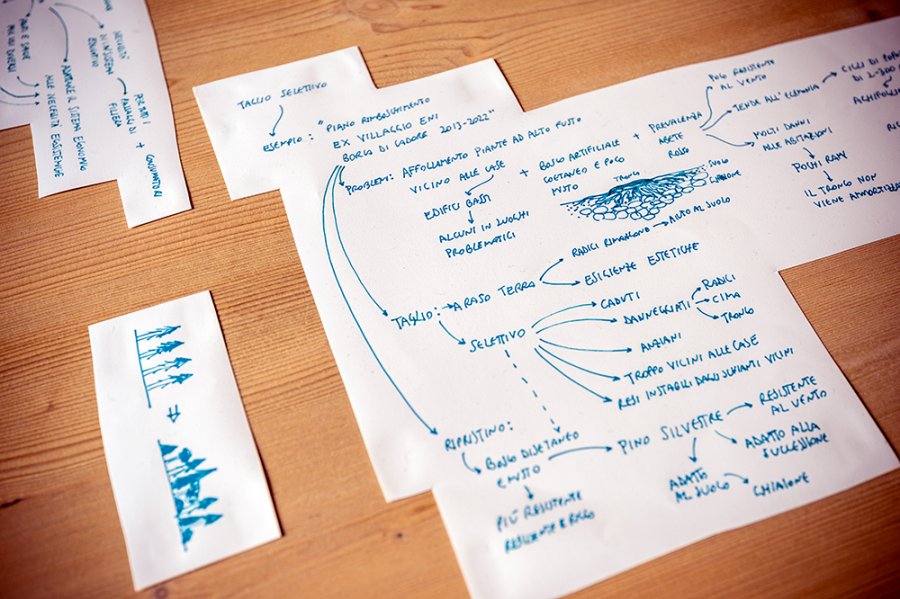 TAGLIO SELETTIVO
ESEMPIO: "PIANO RIMBOSCHIMENTO
EX VILLAGGIO ENI
BORCA DI CADORE 2013-2022"
PROBLEMI: AFFOLLAMENTO PIANTE AD ALTO FUSTO
VICINO ALLE CASE
EDIFICI BASSI
ALCUNI IN LUOGHI
PROBLEMATICI
+ BOSCO ARTIFICIALE
COETANEO E POCO
MISTO
+ PREVALENZA
ABETE
ROSSO
TRONCO
SUOLO
GHIAIONE
POCO RESISTENTE
AL VENTO
TENDE ALL'EGEMONIA
CICLI DI
DI 2-300
MOLTI DANNI
ALLE ABITAZIONI
POCHI RAMI
IL TRONCO NON
VIENE AMMORTIZZATO
TAGLIO:
A RASO TERRA
RADICI RIMANGONO
AIUTO AL SUOLO
ESIGENZE ESTETICHE
SELETTIVO
CADUTI
DANNEGGIATI
RADICI
CIMA
TRONCO
ANZIANI
TROPPO VICINI ALLE CASE
RESI INSTABILI DAGLI SCHIANTI VICINI
RIPRISTINO:
BOSCO DISETANEO
E MISTO
PIÙ RESISTENTE
RESILIENTE E RICCO
PINO SILVESTRE
RESISTENTE
AL VENTO
ADATTO ALLA
SUCCESSIONE
ADATTO
AL SUOLO
GHIAIONE
NECESSITÀ
DI UN SISTEMA
EDUCATIVO
PER TUTTI I
PASSAGGI DI
FILIERA
+
CONSUMATORI
ADATTARE IL SISTEMA ECONOMICO
ALLE NECESSITÀ ECOSISTEMICHE